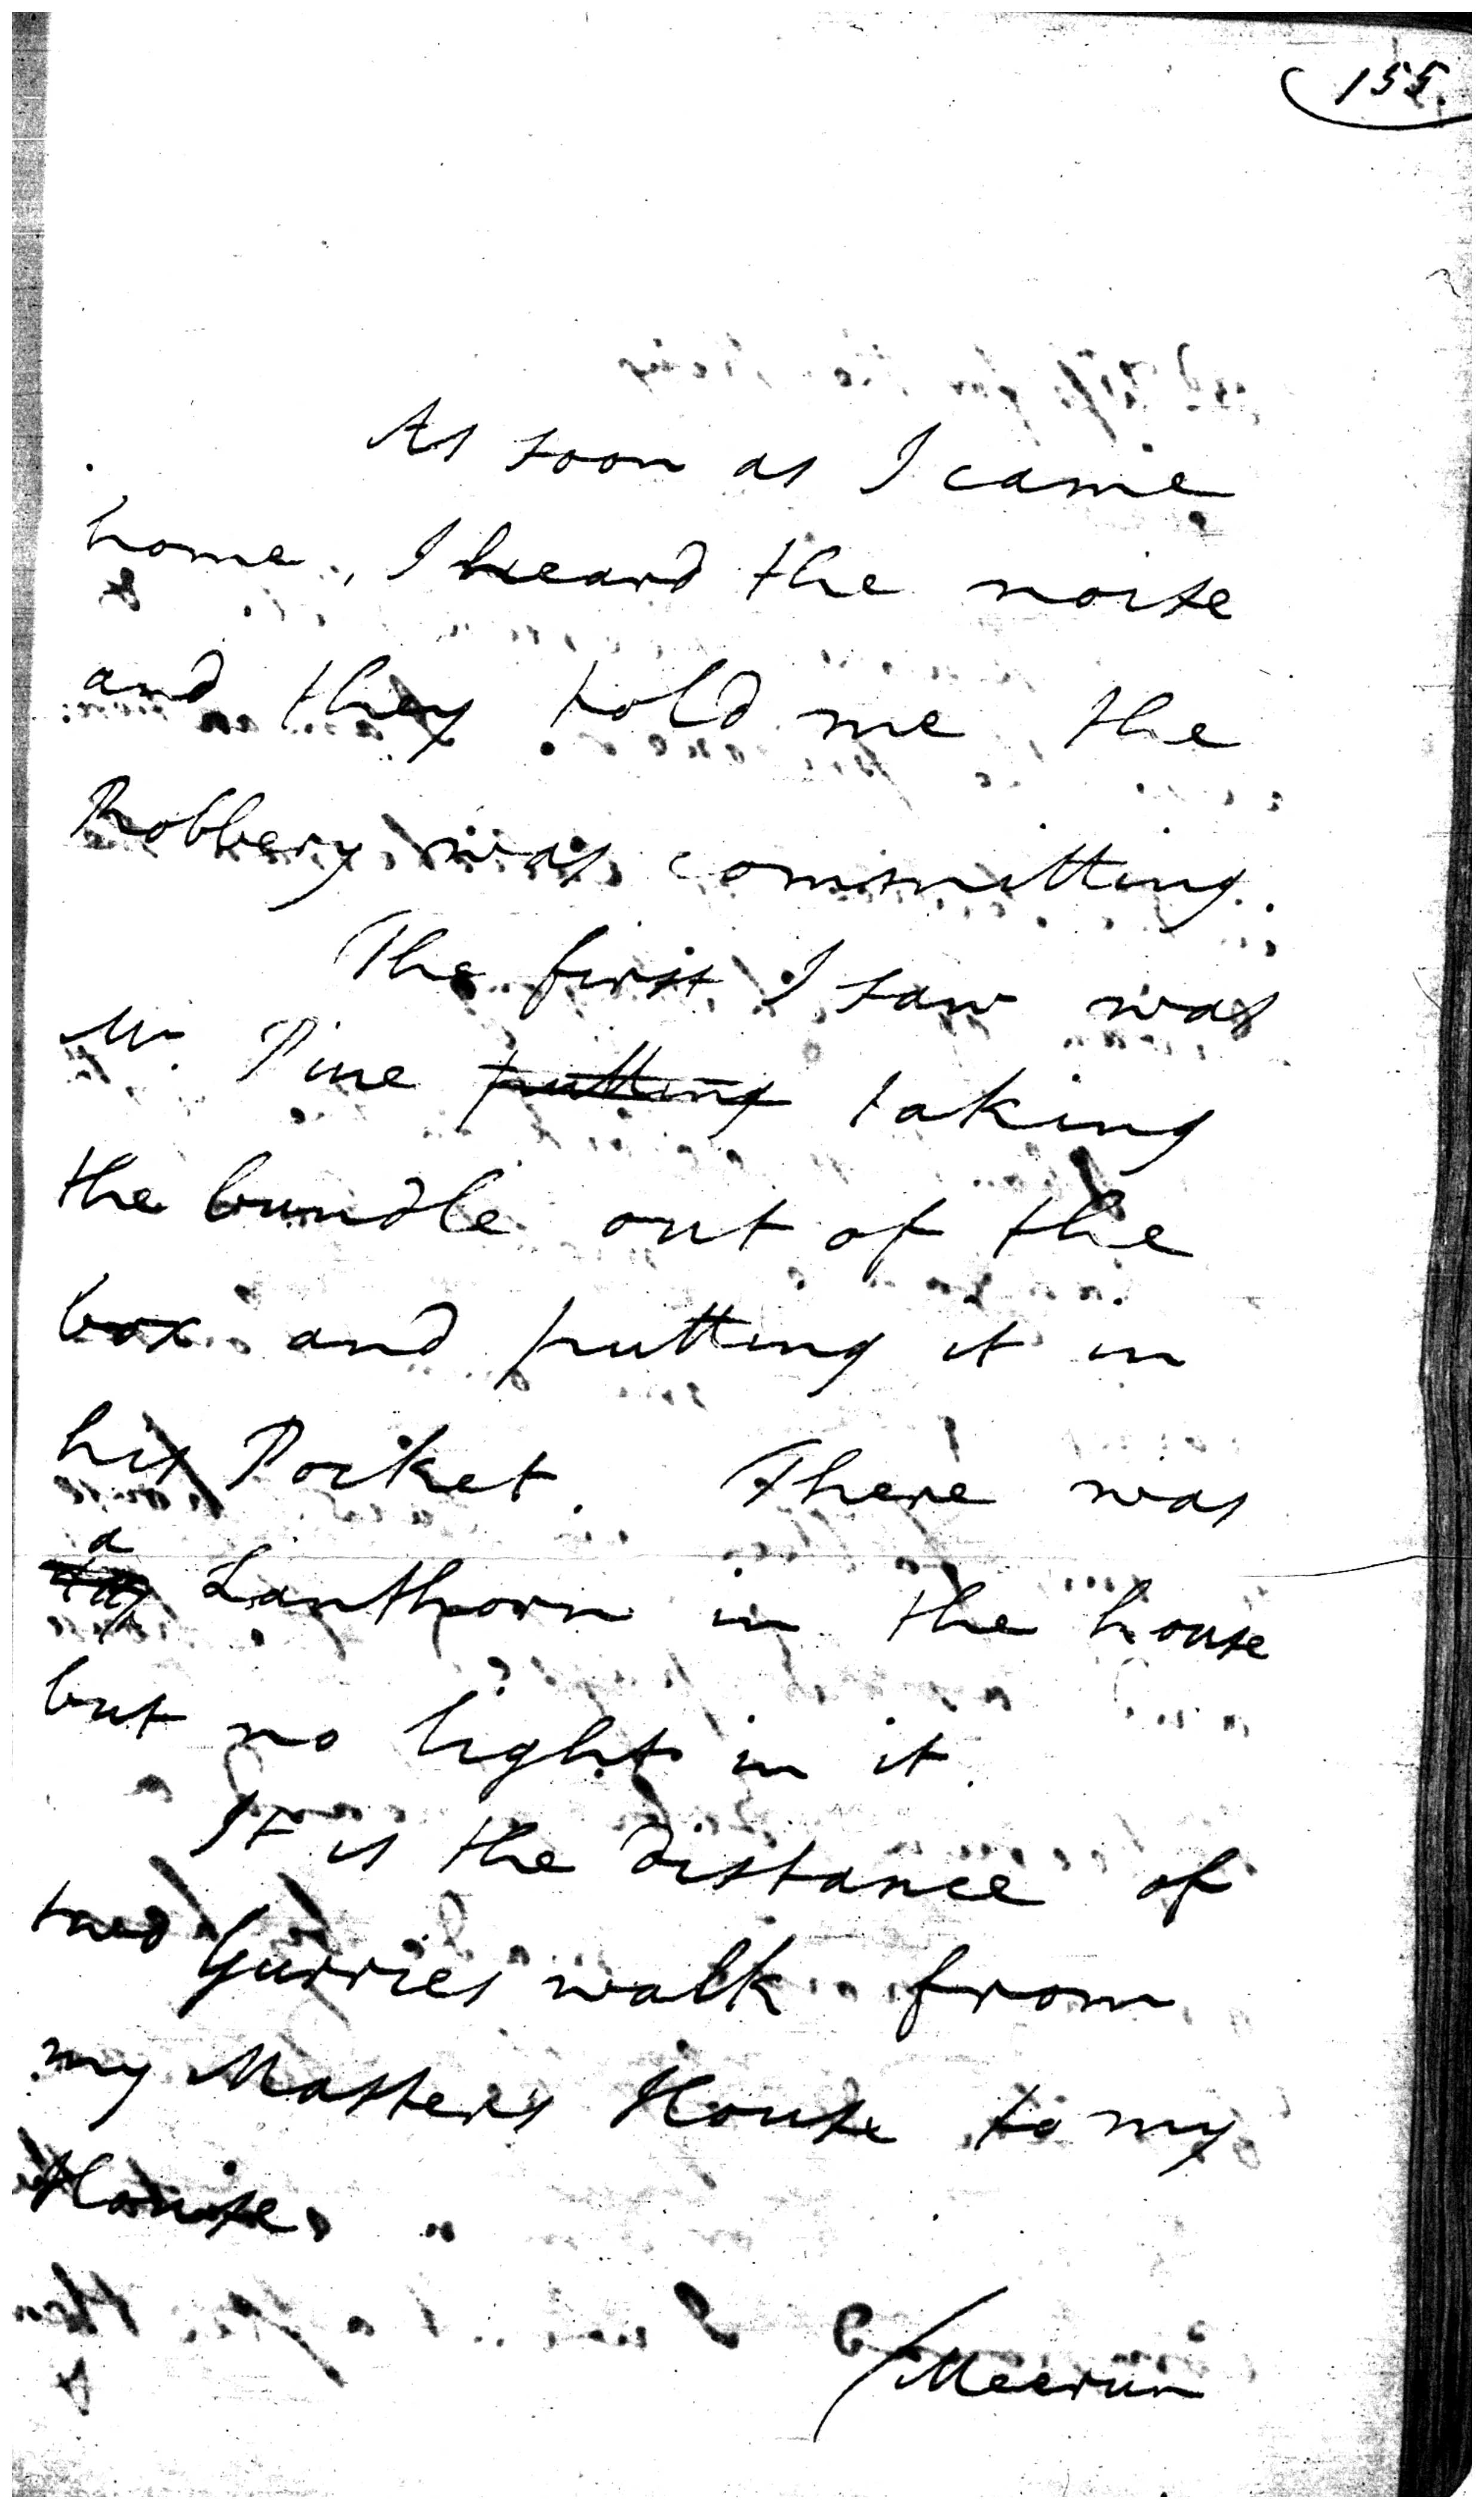 155.
As soon as I came
home, I heard the noise
and they told me the
Robbery was committing.
The first I saw was
Mr. Pine putting taking
the bundle out of the
box and putting it in
his Pocket. There was
a
Lanthorn in the house
but no light in it.
It is the distance of
two Gurries walk from
my Masters House to my
House.
Meerun